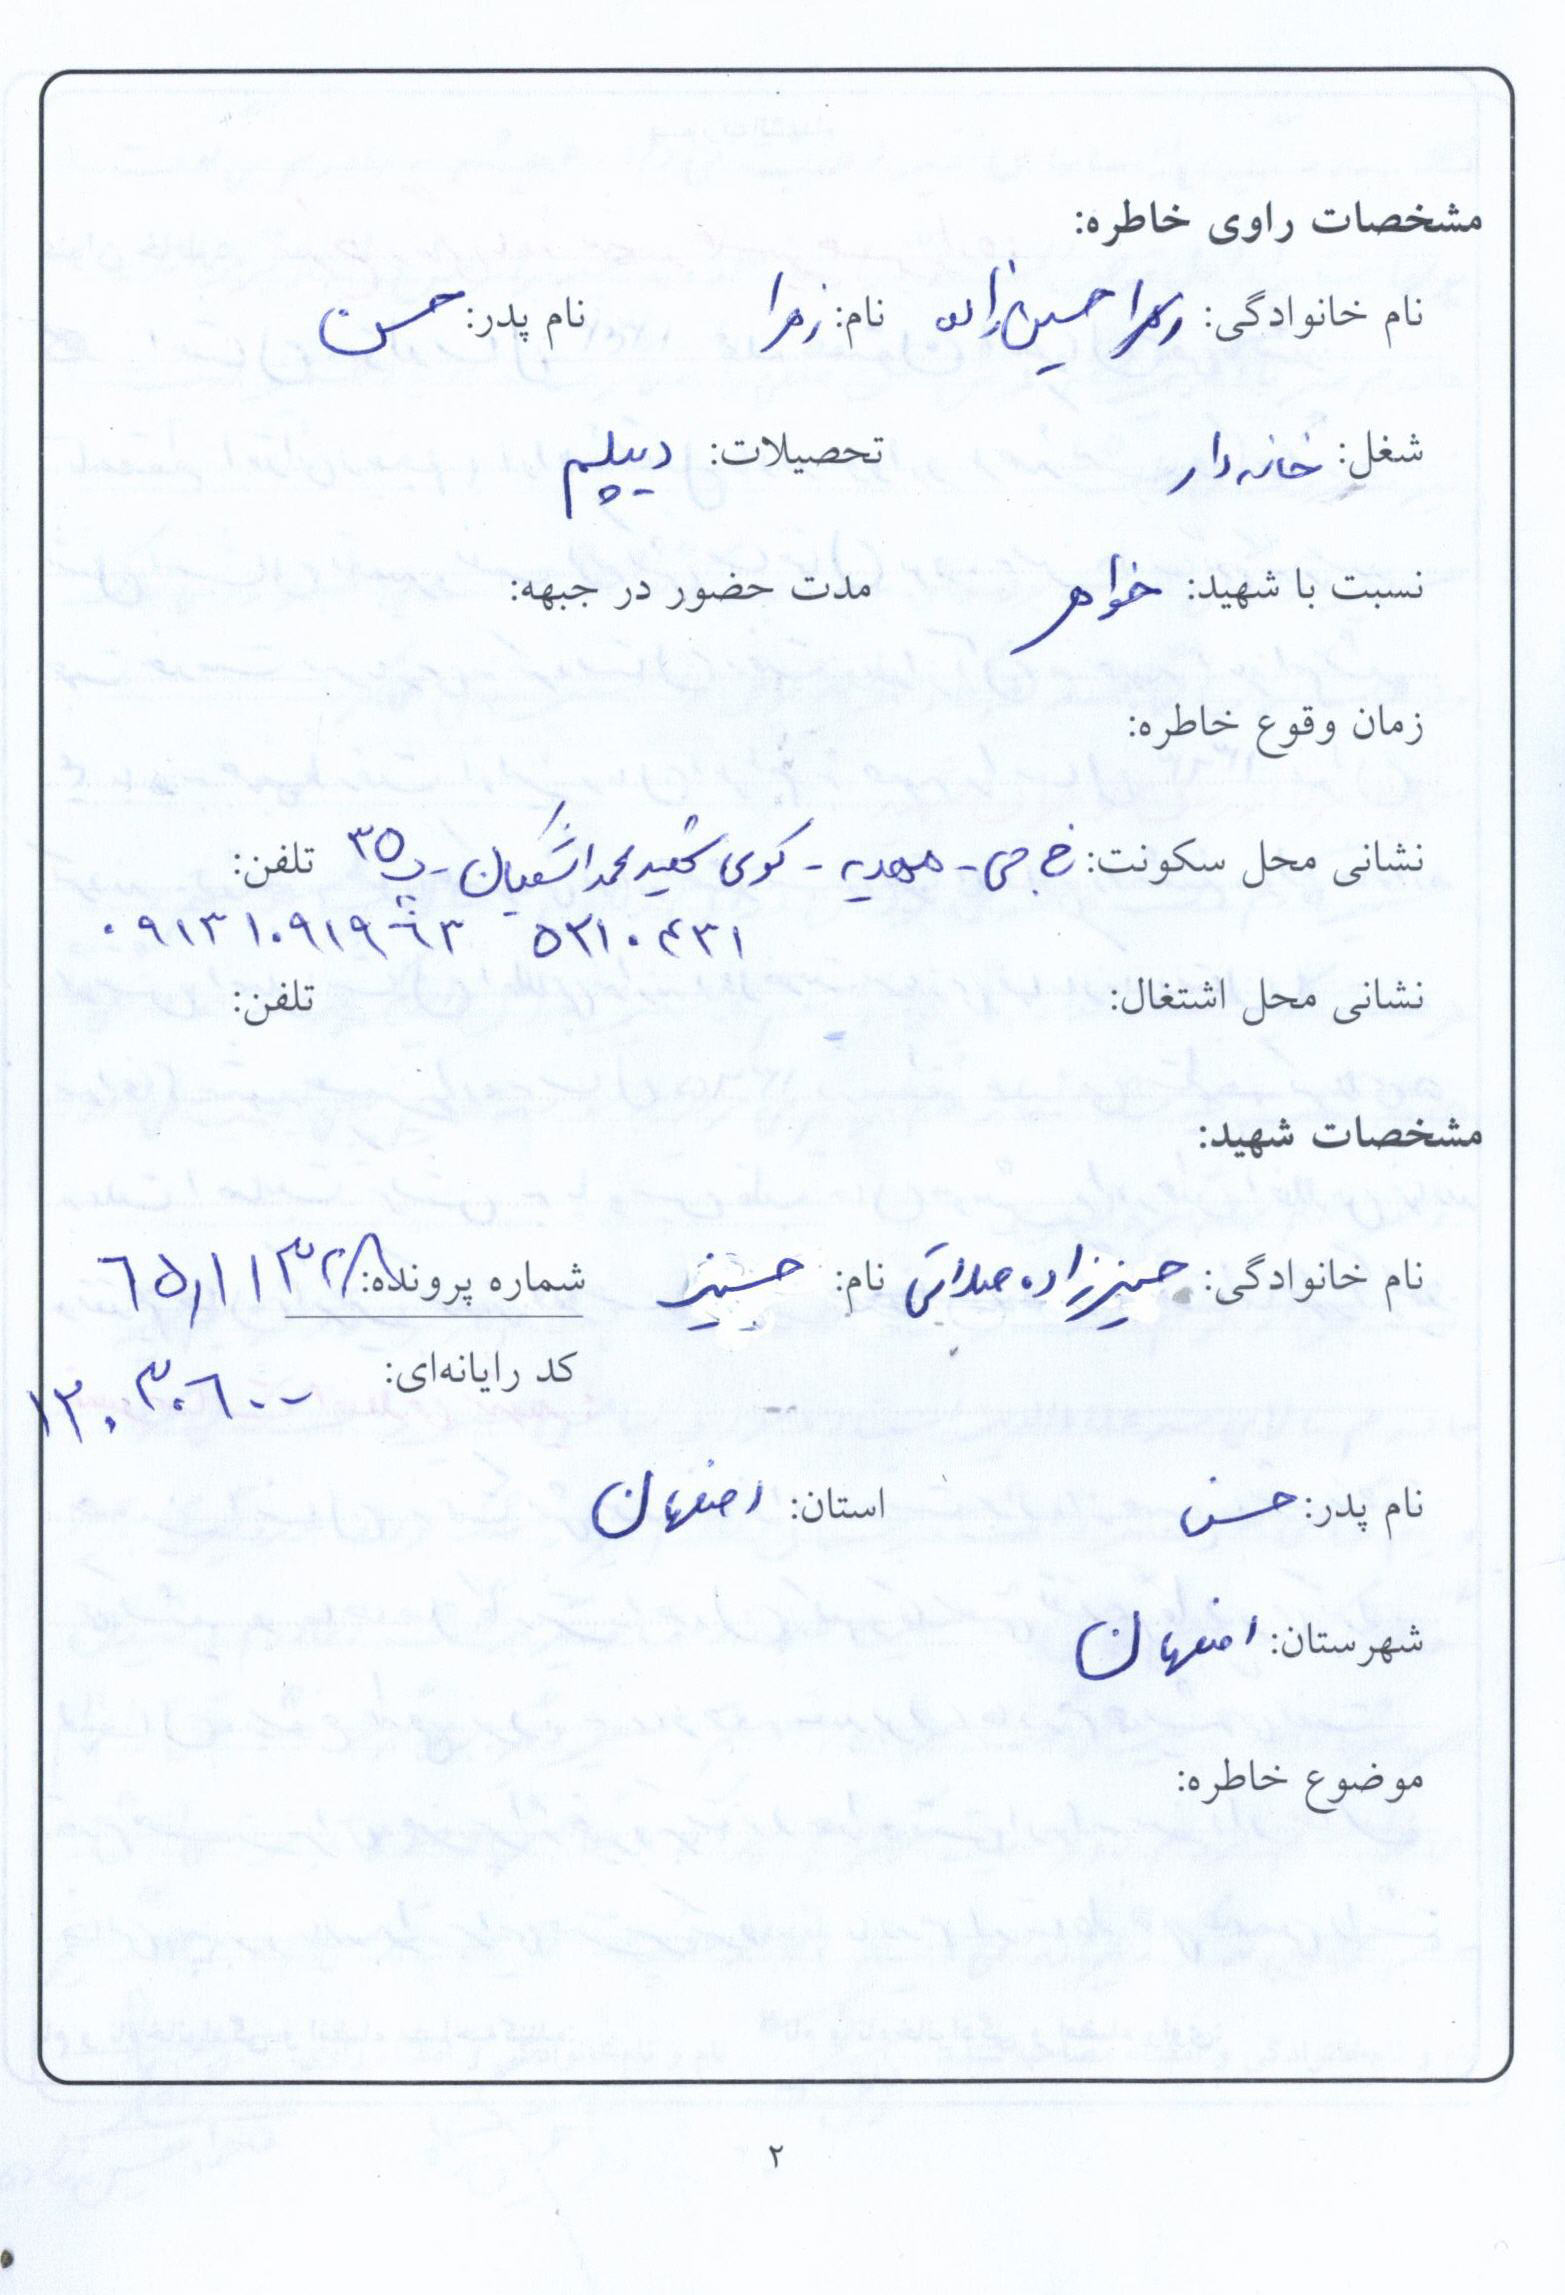 مشخصات راوی خاطره:
نام خانوادگی: زهرا حسین‌زاده نام: زهرا نام پدر: حسن
شغل: خانه‌دار تحصیلات: دیپلم
نسبت با شهید: خواهر مدت حضور در جبهه:
زمان وقوع خاطره:
نشانی محل سکونت: خ جی - مهدیه - کوی شهید محمد اشعیان - پ ۳۵ تلفن:
۵۲۱۰۴۳۱ ۰۹۱۳۱۰۹۱۹۶۳
نشانی محل اشتغال: تلفن:
مشخصات شهید:
نام خانوادگی: حسین‌زاده صداقتی نام: حسین شماره پرونده: ۶۵۱۱۳۲۸
کد رایانه‌ای:
نام پدر: حسن استان: اصفهان
شهرستان: اصفهان
موضوع خاطره:
۲